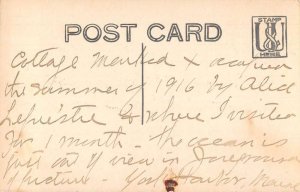 POST CARD
STAMP
HERE
Cottage marked x occupied
the summer of 1916 by Alice
& where I visited
for 1 month - the ocean is
just out of view in foreground
of picture - York Harbor, Maine